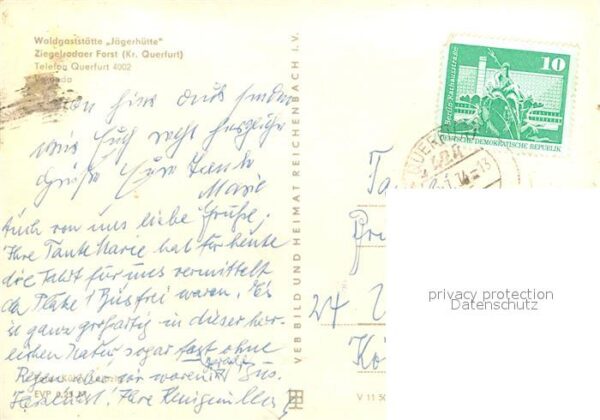 Waldgaststätte „Jägerhütte"
Ziegelrodaer Forst (Kr. Querfurt)
Telefon Querfurt 4002
Veranda
Von hier aus senden
wir Euch recht herzliche
Grüße Eure Tante
Marie
Auch von uns liebe Grüße,
Ihre Tante Marie hat für heute
die Fahrt für uns vermittelt
da Plätze i/Bus frei waren. Es
ist ganz großartig in dieser herr-
lichen Natur sogar fast ohne
Regen, eben wir waren gerade i/Bus.
Herzlichst! Ihre
EVP
VEB BILD UND HEIMAT REICHENBACH I. V.
V 11 50
10
Berlin-Rathausstraße
DEUTSCHE DEMOKRATISCHE REPUBLIK
QUERFURT
privacy protection
Datenschutz